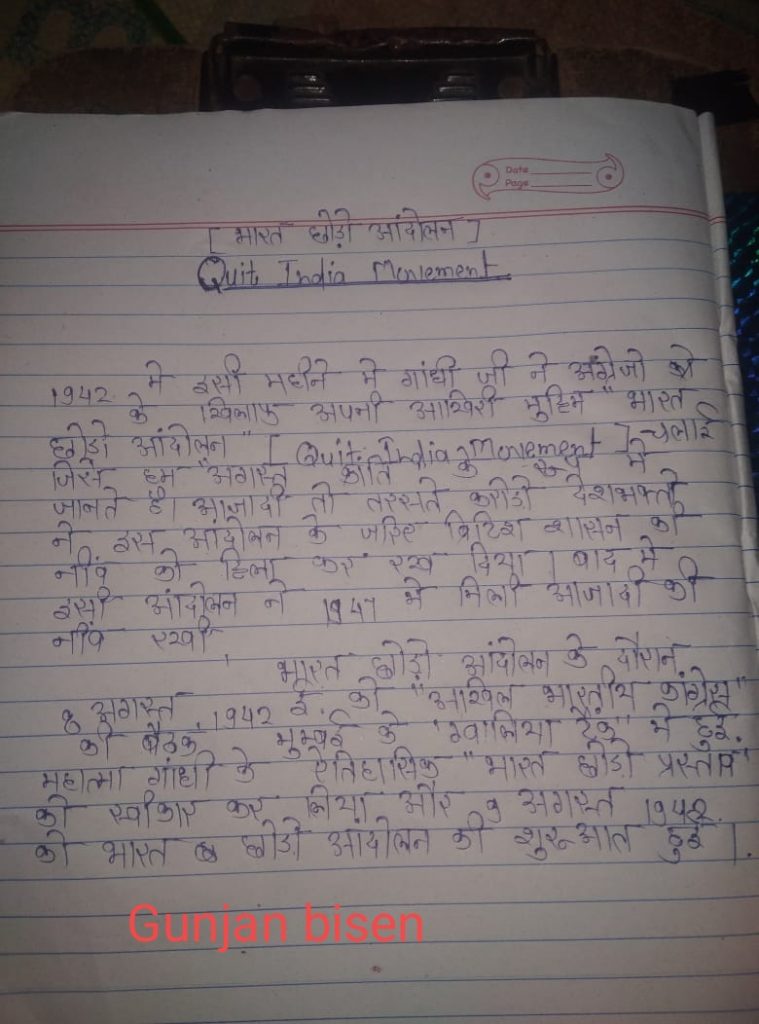 Date
Page
[ भारत छोड़ो आंदोलन ]
Quit India Movement
1942 में इसी महीने में गांधी जी ने अंग्रेजो
के खिलाफ अपनी आखिरी मुहिम "भारत
छोड़ो आंदोलन" [ Quit India Movement ] चलाई
जिसे हम "अगस्त क्रांति के में
जानते है। आजादी तो तरसते करोडो देशभक्तो
ने इस आंदोलन के जरिए ब्रिटिश शासन की
नींव को हिला कर रख दिया। बाद में
इसी आंदोलन ने 1947 में मिली आजादी की
नींव रखी,
भारत छोड़ो आंदोलन के दौरान
8 अगस्त 1942 ई. को "अखिल भारतीय कांग्रेस"
की बैठक मुम्बई के "ग्वालिया टैंक" में हुई.
महात्मा गांधी के ऐतिहासिक "भारत छोड़ो प्रस्ताव"
को स्वीकार कर लिया और 9 अगस्त 1942
को भारत छोडो आंदोलन की शुरूआत हुई।
Gunjan bisen